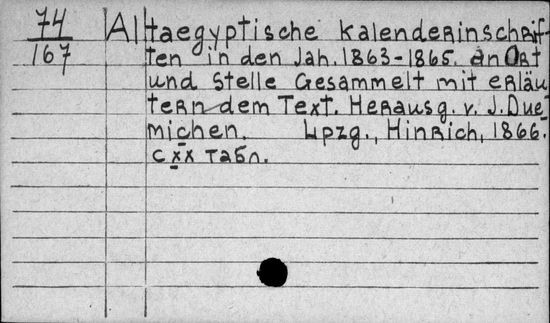 74
167
Altaegyptische Kalenderinschrif-
ten in den Jah. 1863-1865. an Ort
und Stelle Gesammelt mit erläu-
tern dem Text. Herausg. v. J. Due-
michen. Lpzg., Hinrich, 1866.
c xx табл.